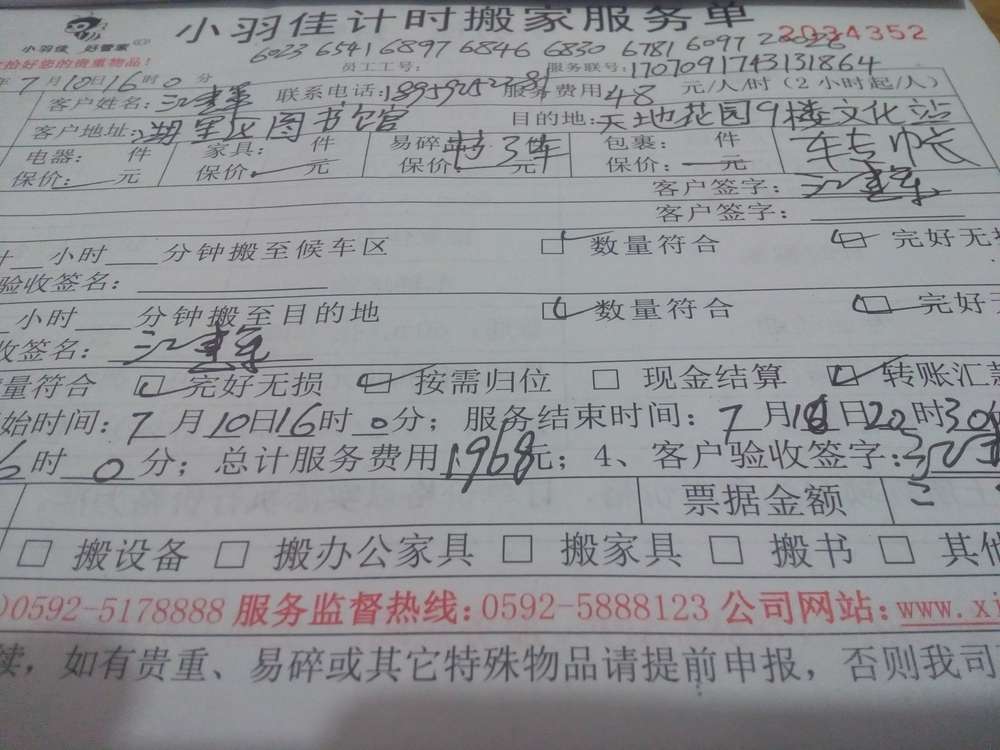 小羽佳计时搬家服务单
小羽佳 好管家
收拾好您的贵重物品!
6023 6541 6897 6846 6830 6781 6097
2034352
员工工号:
服务联号:1707091743131864
年7月10日16时0分
客户姓名: 联系电话: 服务费用48元/人/时(2小时起/人)
客户地址:湖里区图书馆 目的地:天地花园9楼文化站
电器: 件 家具: 件 易碎 包裹: 件
保价: 元 保价: 元 保价: 元 保价: 元
客户签字:
客户签字:
时 小时 分钟搬至候车区 数量符合 完好无损
验收签名:
小时 分钟搬至目的地 数量符合 完好无
收签名:
量符合 完好无损 按需归位 现金结算 转账汇款
始时间:7月10日16时0分;服务结束时间:7月 日20时30分
6时0分;总计服务费用1968元;4、客户验收签字:
票据金额
搬设备 搬办公家具 搬家具 搬书 其他
)0592-5178888 服务监督热线:0592-5888123 公司网站:www.xi
续,如有贵重、易碎或其它特殊物品请提前申报,否则我司